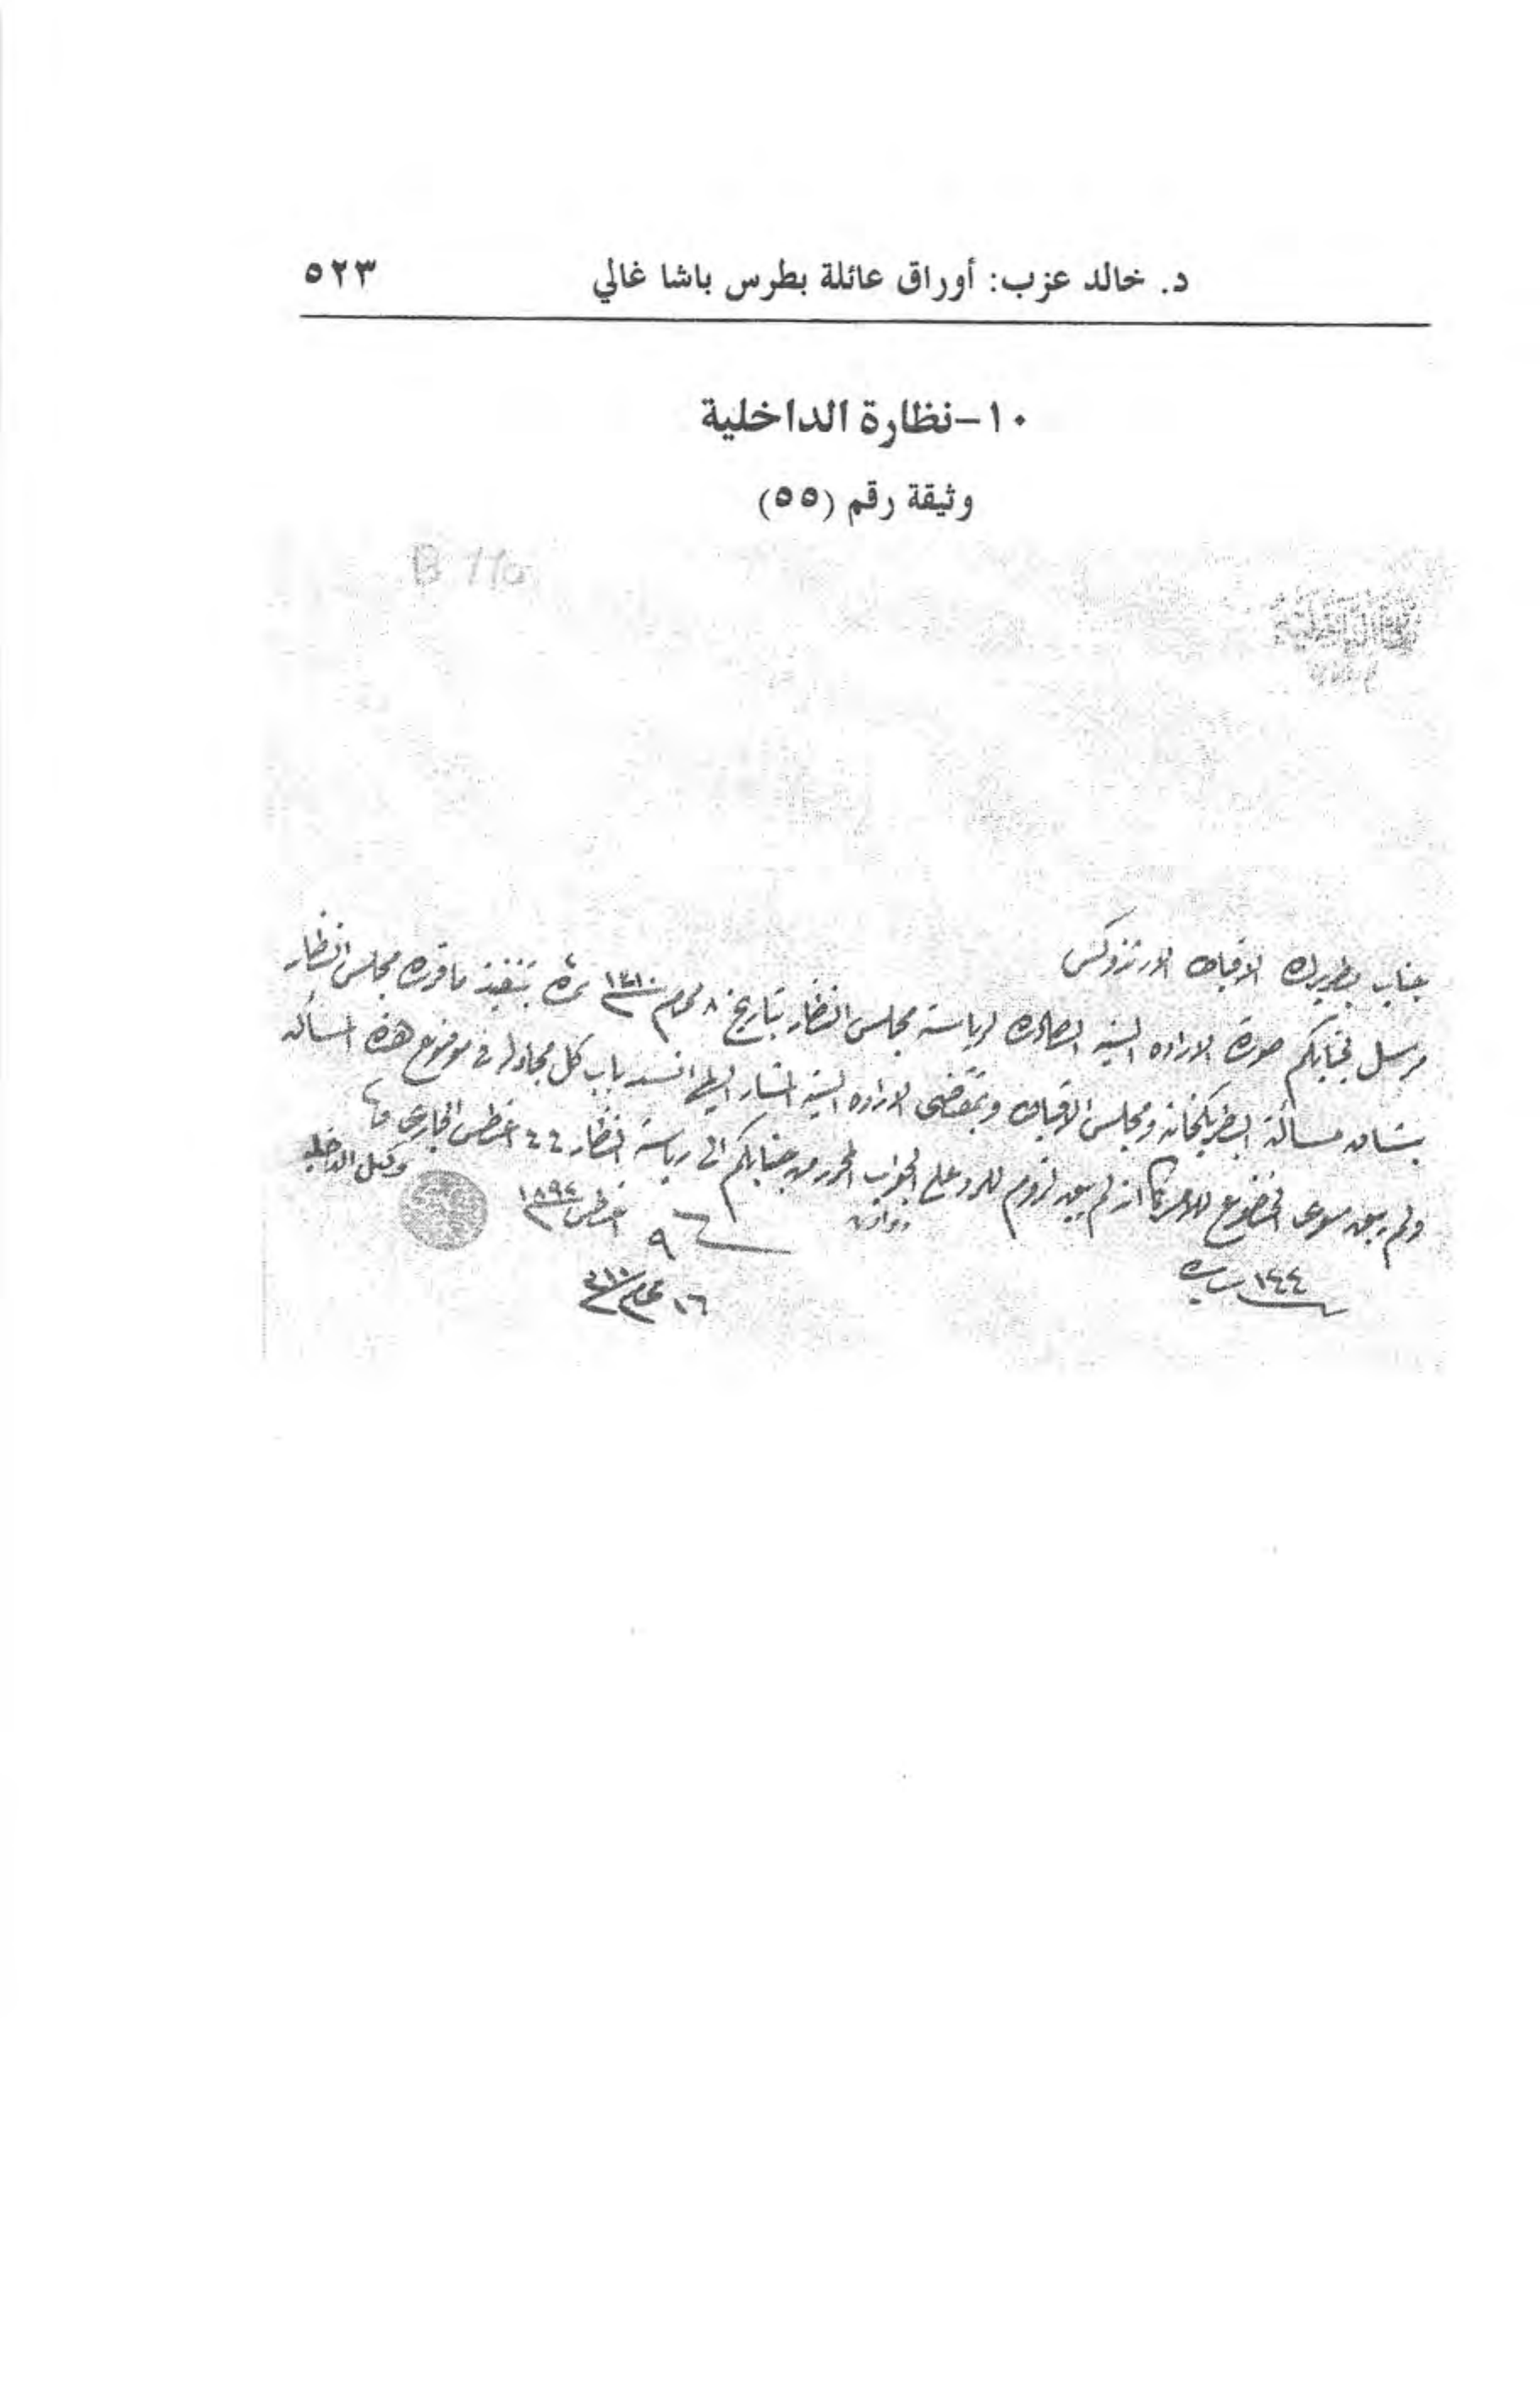 د. خالد عزب: أوراق عائلة بطرس باشا غالي ٥٢٣
١٠-نظارة الداخلية
وثيقة رقم (٥٥)
B 11a
جناب بطريرك الاقباط الارتزوكس
مرسل لجنابكم صورة الاراده السنيه الصادره لرياسة مجلس النظار بتاريخ ٨ محرم ١٣١٠ نمرة بتنفيذ ما قرره مجلس النظار
بشان مسألة البطريكخانه ومجلس الاقباط وبمقتضى الاراده السنيه المشار اليها انسد باب كل مجادله في موضوع هذه المسأله
ولم يبق سوى الخضوع للامر كما انه لم يبق لزوم للرد على الجواب المحرر من جنابكم الى رياسة النظار اغسطس الجارى
وكيل الداخليه
اغسطس ١٨٩٢
٩
١٦ محرم ٣١٠
١٤٤